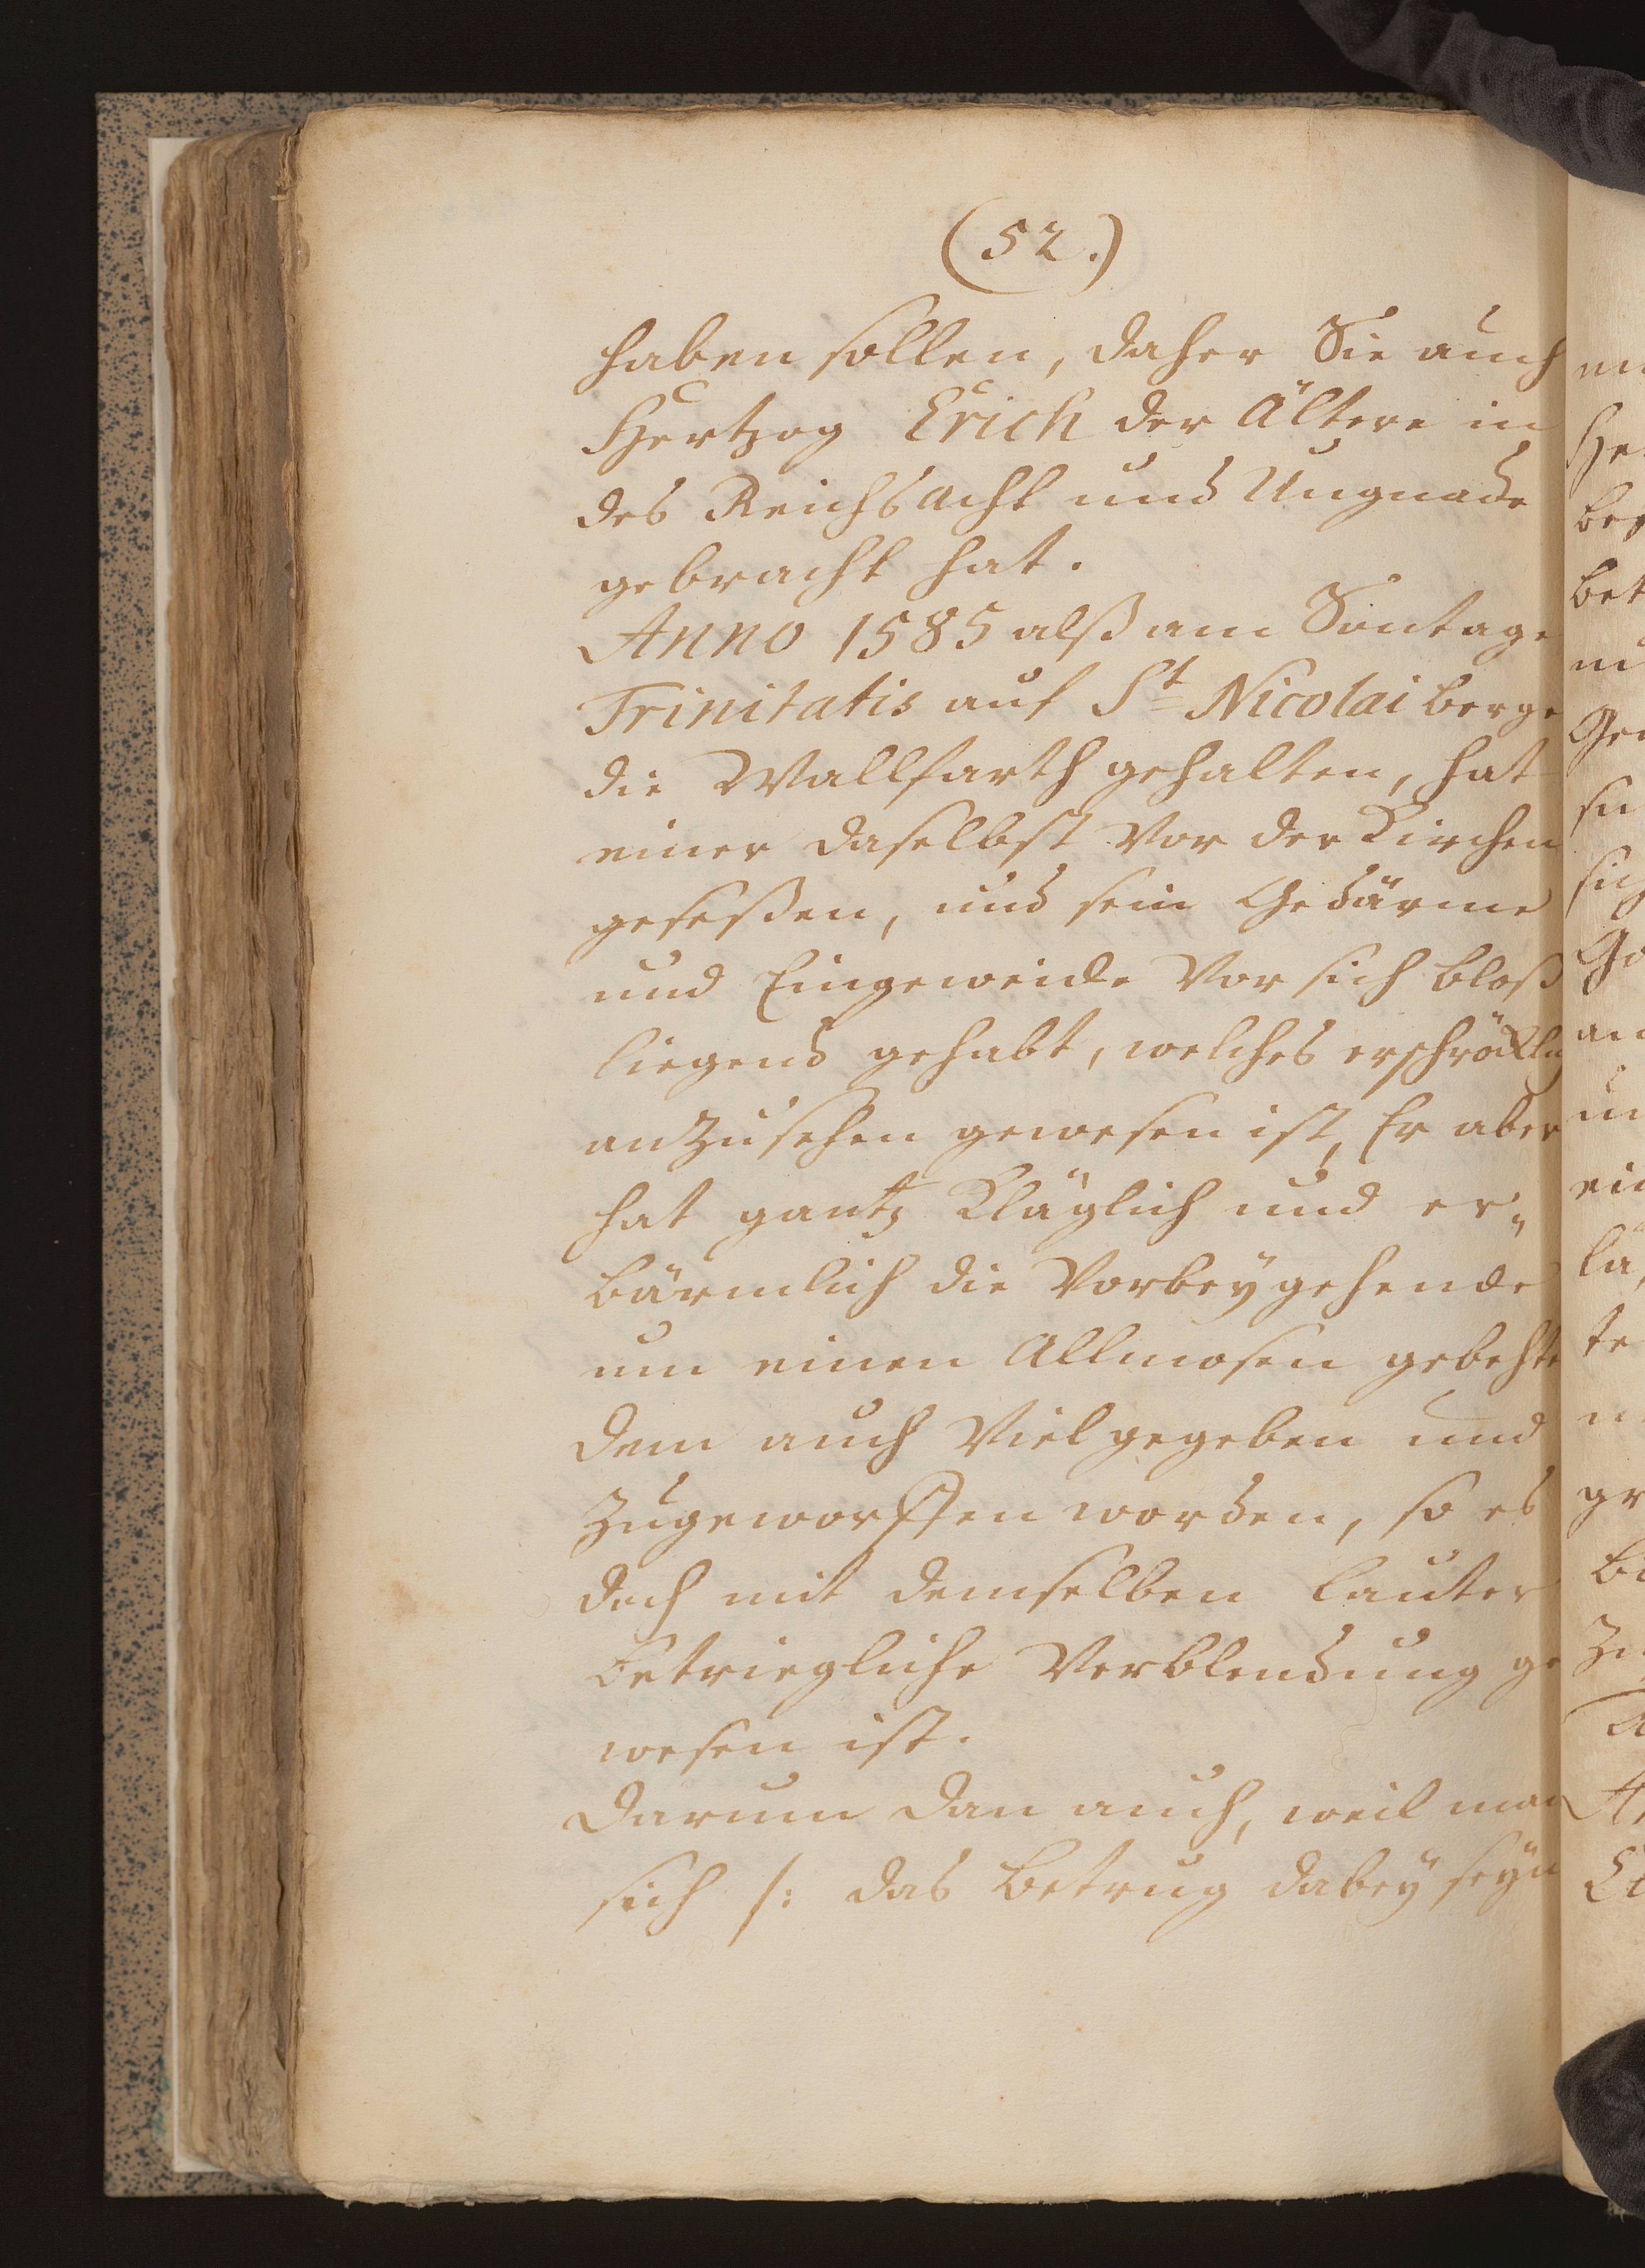 (52.)
haben sollen, daher Sie auch
Hertzog Erich der Ältere in
des Reichs acht und Ungnade
gebracht hat.
Anno 1585 alß am Sontage
Trinitatis auf St Nicolai berge
die Wallfarth gehalten, hat
einer daselbst vor der Kirchen
geseßen, und sein Gedärme
und Eingeweide vor sich bloß
liegend gehabt, welches erschröckl.
anzusehen gewesen ist, Er aber
hat gantz Kläglich und er„
bärmlich die Vorbeygehende
um einen Allmosen gebehte
dem auch Viel gegeben und
zugeworffen worden, so es
doch mit demselben lauter
betriegliche Verblendung ge
wesen ist.
Darum dan auch, weil man
sich /: das Betrug dabey seyn